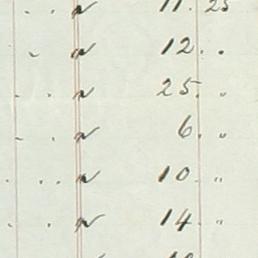 " 11. 25
" 12. "
" 25. "
" 6. "
" 10. "
" 14. "